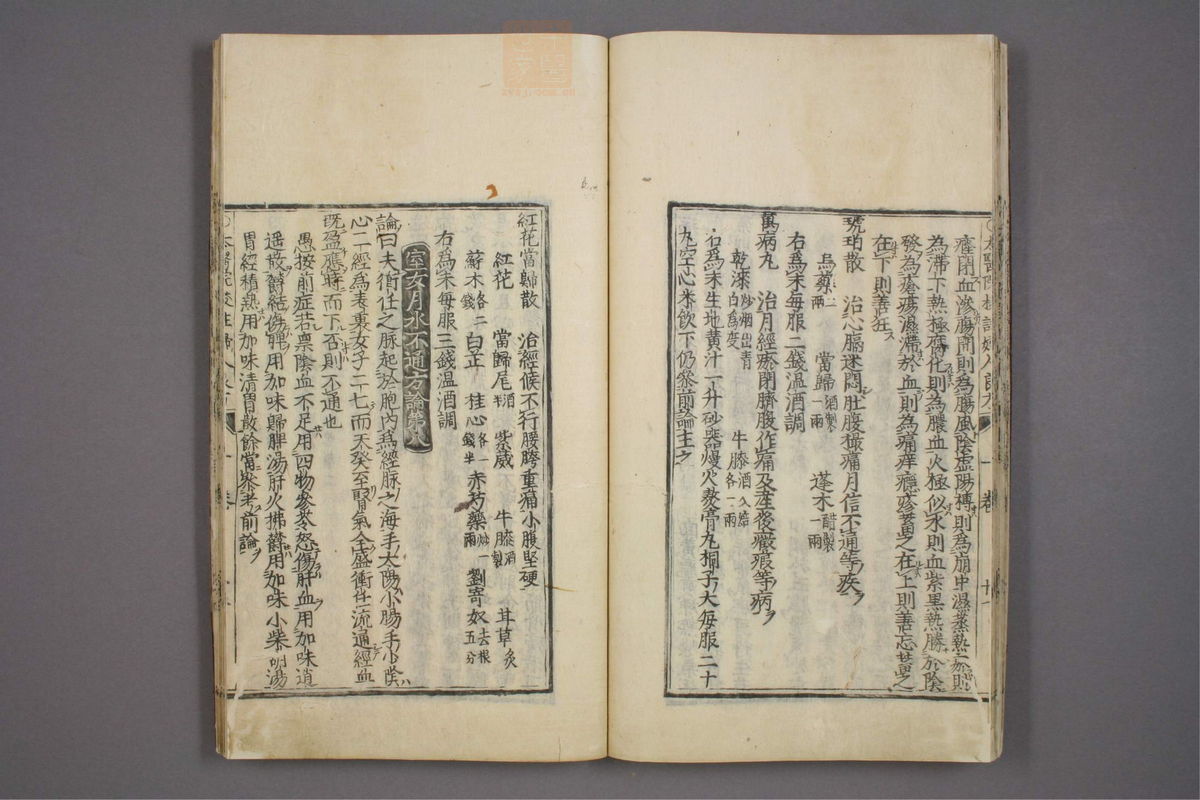 瘧閉血滲腸間則為腸風陰虛陽搏則為崩中濕蒸熱瘀則
為滯下熱極腐化則為膿血火極似水則血紫黑熱勝於陰
發為瘡瘍濕滯於血則為痛痒癮疹蓄之在上則善忘蓄之
在下則善狂
琥珀散　治心膈迷悶肚腹撮痛月信不通等疾
烏藥二兩　當歸酒製一兩　莪朮醋製一兩
右為末每服二錢溫酒調
萬病丸　治月經瘀閉臍腹作痛及產後癥瘕等病
乾漆炒烟出青白為度　牛膝酒久焙各一兩
右為末生地黃汁一升砂器慢火熬膏丸桐子大每服二十
丸空心米飲下仍參前論主之
紅花當歸散　治經候不行腰胯重痛小腹堅硬
紅花　當歸尾酒　紫葳　牛膝酒製　甘草炙
蘇木各二錢　白芷　桂心各一錢半　赤芍藥炒一兩　劉寄奴去根五分
右為末每服三錢溫酒調
室女月水不通方論第八
論曰夫衝任之脉起於胞內為經脉之海手太陽小腸手少陰
心二經為表裏女子二七而天癸至腎氣全盛衝任流通經血
既盈應時而下否則不通也
愚按前症若稟陰血不足用四物參苓怒傷肝血用加味逍
遙散鬱結傷脾用加味歸脾湯肝火拂鬱用加味小柴胡湯
胃經積熱用加味清胃散餘當參考前論